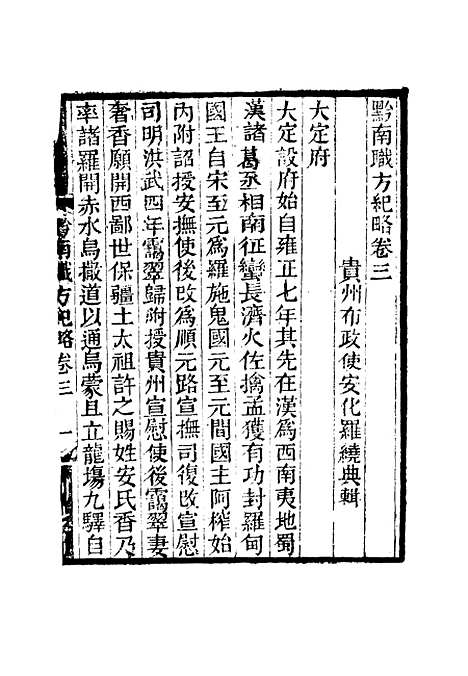 黔南職方紀略卷三
貴州布政使安化羅繞典輯
大定府
大定設府始自雍正七年其先在漢爲西南夷地蜀
漢諸葛丞相南征蠻長濟火佐擒孟獲有功封羅甸
國王自宋至元爲羅施鬼國元至元間國主阿榨始
內附詔授安撫使後改爲順元路宣撫司復改宣慰
司明洪武四年靄翠歸附授貴州宣慰使後靄翠妻
奢香願開西鄙世保疆土太祖許之賜姓安氏香乃
率諸羅開赤水烏撒道以通烏蒙且立龍塲九驛自
黔南職方紀略卷三 一